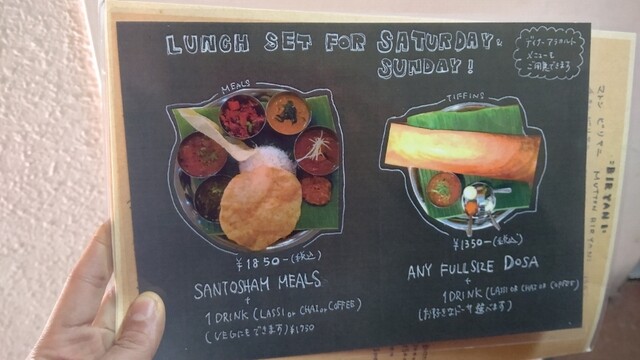 LUNCH SET FOR SATURDAY &
SUNDAY!
ディナーアラカルト
メニューも
ご用意できます
MEALS
¥1850-(税込)
SANTOSHAM MEALS
+
1 DRINK (LASSI or CHAI or COFFEE)
(VEGにもできます) ¥1750
TIFFINS
¥1350-(税込)
ANY FULLSIZE DOSA
+
1 DRINK (LASSI OR CHAI OR COFFEE)
(お好きなドーサ選べます)
"BIRYANI"
MUTTON BIRYANI
マトン ビリヤニ